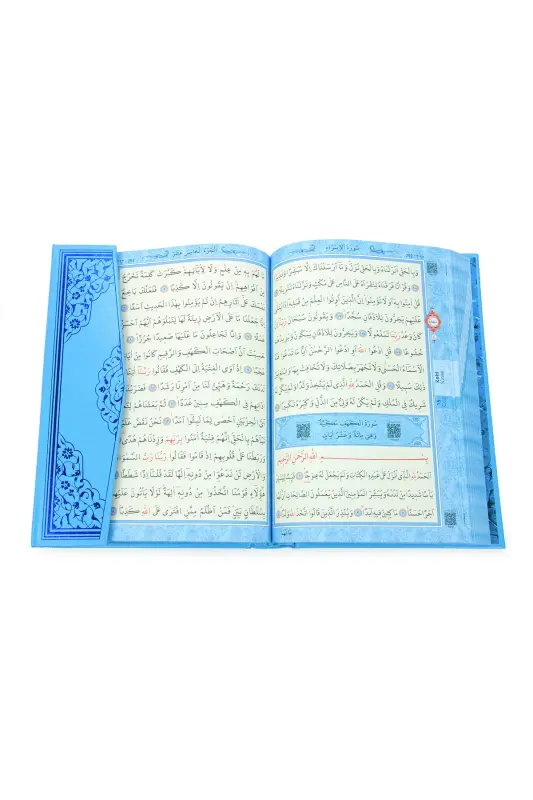 سُورَةُ الْاِسْرَاءِ
وَبِالْحَقِّ اَنْزَلْنَاهُ وَبِالْحَقِّ نَزَلَ وَمَا اَرْسَلْنَاكَ اِلَّا مُبَشِّرًا
وَقُرْاٰنًا فَرَقْنَاهُ لِتَقْرَاَهُ عَلَى النَّاسِ عَلٰى مُكْثٍ وَنَزَّلْنَاهُ
قُلْ اٰمِنُوا بِهِ اَوْ لَا تُؤْمِنُوا اِنَّ الَّذِينَ اُوتُوا الْعِلْمَ مِنْ قَبْلِهِ اِذَا
عَلَيْهِمْ يَخِرُّونَ لِلْاَذْقَانِ سُجَّدًا وَيَقُولُونَ سُبْحَانَ رَبِّنَا
كَانَ وَعْدُ رَبِّنَا لَمَفْعُولًا وَيَخِرُّونَ لِلْاَذْقَانِ يَبْكُونَ وَيَزِيدُهُمْ
خُشُوعًا قُلِ ادْعُوا اللّٰهَ اَوِ ادْعُوا الرَّحْمٰنَ اَيًّا مَا تَدْعُوا فَلَهُ
الْاَسْمَاءُ الْحُسْنٰى وَلَا تَجْهَرْ بِصَلَاتِكَ وَلَا تُخَافِتْ بِهَا وَابْتَغِ بَيْنَ
ذٰلِكَ سَبِيلًا وَقُلِ الْحَمْدُ لِلّٰهِ الَّذِي لَمْ يَتَّخِذْ وَلَدًا وَلَمْ يَكُنْ لَهُ
شَرِيكٌ فِي الْمُلْكِ وَلَمْ يَكُنْ لَهُ وَلِيٌّ مِنَ الذُّلِّ وَكَبِّرْهُ تَكْبِيرًا
سُورَةُ الْكَهْفِ مَكِّيَّةٌ
وَهِيَ مِائَةٌ وَعَشْرُ اٰيَاتٍ
بِسْمِ اللّٰهِ الرَّحْمٰنِ الرَّحِيمِ
اَلْحَمْدُ لِلّٰهِ الَّذِي اَنْزَلَ عَلٰى عَبْدِهِ الْكِتَابَ وَلَمْ يَجْعَلْ لَهُ عِوَجًا قَيِّمًا لِيُنْذِرَ
بَاْسًا شَدِيدًا مِنْ لَدُنْهُ وَيُبَشِّرَ الْمُؤْمِنِينَ الَّذِينَ يَعْمَلُونَ الصَّالِحَاتِ اَنَّ لَهُمْ
اَجْرًا حَسَنًا مَاكِثِينَ فِيهِ اَبَدًا وَيُنْذِرَ الَّذِينَ قَالُوا اتَّخَذَ اللّٰهُ وَلَدًا
مَالَهُمْ
اَلْجُزْءُ الْخَامِسَ عَشَرَ
مَا لَهُمْ بِهِ مِنْ عِلْمٍ وَلَا لِاٰبَائِهِمْ كَبُرَتْ كَلِمَةً تَخْرُجُ
مِنْ اَفْوَاهِهِمْ اِنْ يَقُولُونَ اِلَّا كَذِبًا فَلَعَلَّكَ بَاخِعٌ
نَفْسَكَ عَلٰى اٰثَارِهِمْ اِنْ لَمْ يُؤْمِنُوا بِهٰذَا الْحَدِيثِ اَسَفًا
اِنَّا جَعَلْنَا مَا عَلَى الْاَرْضِ زِينَةً لَهَا لِنَبْلُوَهُمْ اَيُّهُمْ اَحْسَنُ
عَمَلًا وَاِنَّا لَجَاعِلُونَ مَا عَلَيْهَا صَعِيدًا جُرُزًا اَمْ
حَسِبْتَ اَنَّ اَصْحَابَ الْكَهْفِ وَالرَّقِيمِ كَانُوا مِنْ اٰيَاتِنَا
عَجَبًا اِذْ اَوَى الْفِتْيَةُ اِلَى الْكَهْفِ فَقَالُوا رَبَّنَا اٰتِنَا
مِنْ لَدُنْكَ رَحْمَةً وَهَيِّئْ لَنَا مِنْ اَمْرِنَا رَشَدًا فَضَرَبْنَا عَلٰى
اٰذَانِهِمْ فِي الْكَهْفِ سِنِينَ عَدَدًا ثُمَّ بَعَثْنَاهُمْ لِنَعْلَمَ
اَيُّ الْحِزْبَيْنِ اَحْصٰى لِمَا لَبِثُوا اَمَدًا نَحْنُ نَقُصُّ عَلَيْكَ
نَبَاَهُمْ بِالْحَقِّ اِنَّهُمْ فِتْيَةٌ اٰمَنُوا بِرَبِّهِمْ وَزِدْنَاهُمْ هُدًى
وَرَبَطْنَا عَلٰى قُلُوبِهِمْ اِذْ قَامُوا فَقَالُوا رَبُّنَا رَبُّ السَّمٰوَاتِ
وَالْاَرْضِ لَنْ نَدْعُوَا مِنْ دُونِهِ اِلٰهًا لَقَدْ قُلْنَا اِذًا شَطَطًا
هٰؤُلَاءِ قَوْمُنَا اتَّخَذُوا مِنْ دُونِهِ اٰلِهَةً لَوْلَا يَاْتُونَ عَلَيْهِمْ
بِسُلْطَانٍ بَيِّنٍ فَمَنْ اَظْلَمُ مِمَّنِ افْتَرٰى عَلَى اللّٰهِ كَذِبًا